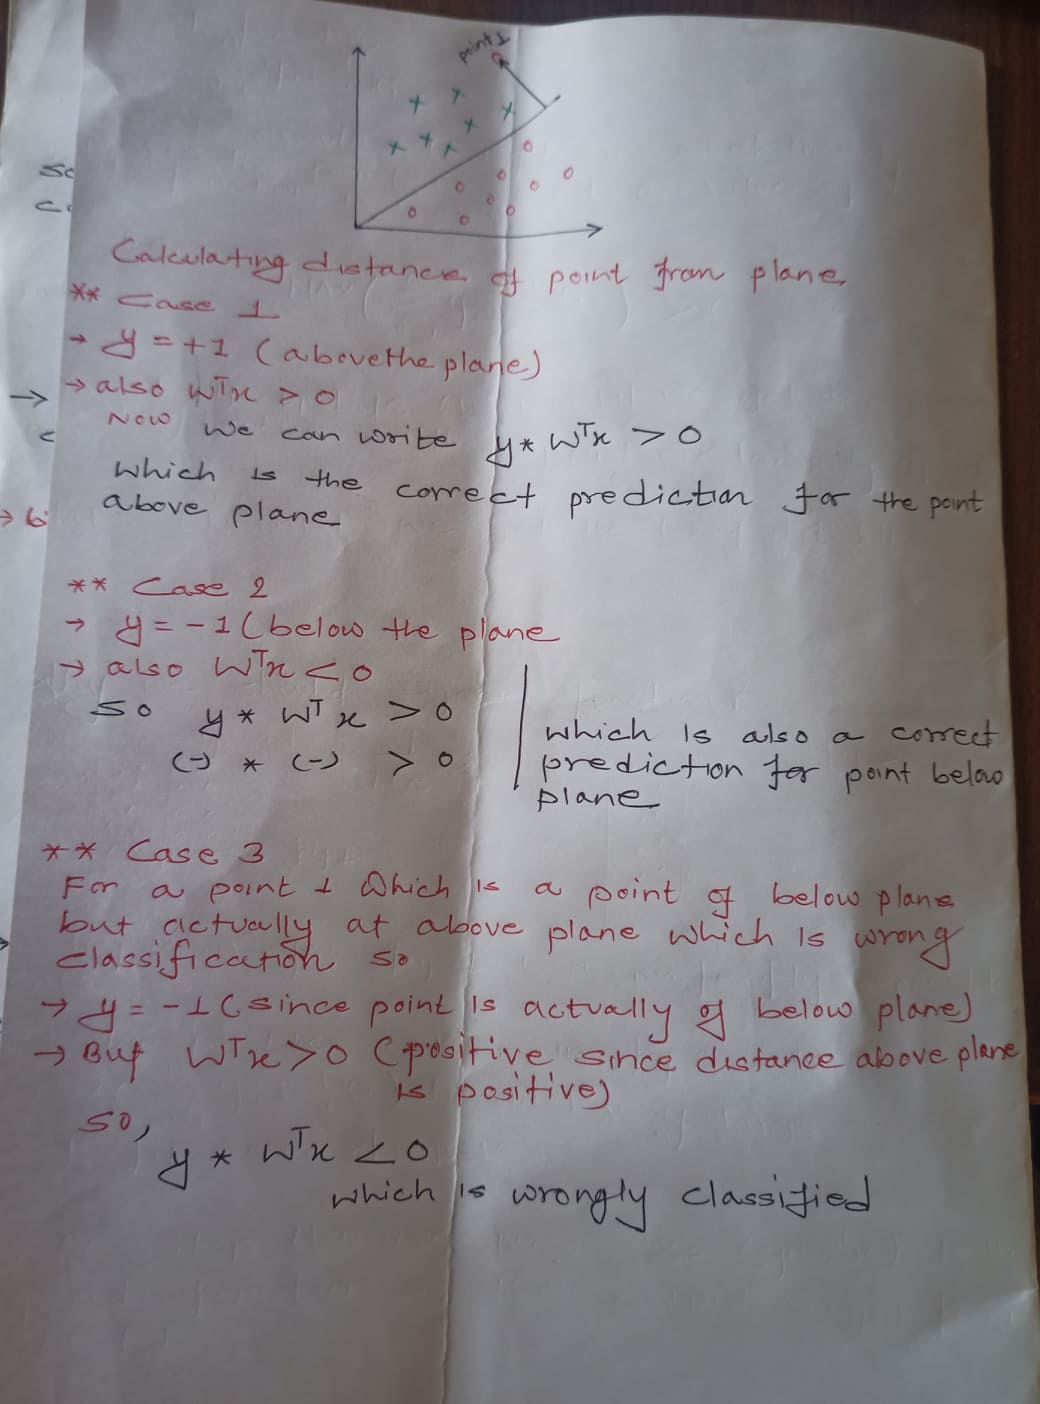 point 1
Calculating distance of point from plane
** Case 1
→ y = +1 (above the plane)
→ also wᵀx > 0
Now we can write y * wᵀx > 0
which is the correct prediction for the point
above plane
** Case 2
→ y = -1 (below the plane
→ also wᵀx < 0
so y * wᵀx > 0
(-) * (-) > 0
which is also a correct
prediction for point below
plane
** Case 3
For a point 1 which is a point of below plane
but actually at above plane which is wrong
classification so
→ y = -1 (since point is actually of below plane)
→ But wᵀx > 0 (positive since distance above plane
is positive)
so,
y * wᵀx < 0
which is wrongly classified